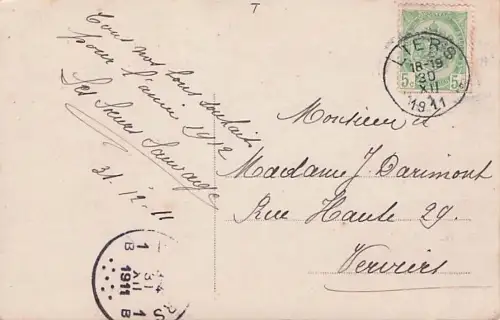 T
Tous nos bons souhaits
pour l'année 1912
Les Sœurs Sauvage
31. 12. 11
5c 5c
LIERS
18-19
30
XII
1911
Monsieur et
Madame J. Darimont
Rue Haute 29.
Verviers
31
XII
1911
1 B
1 B